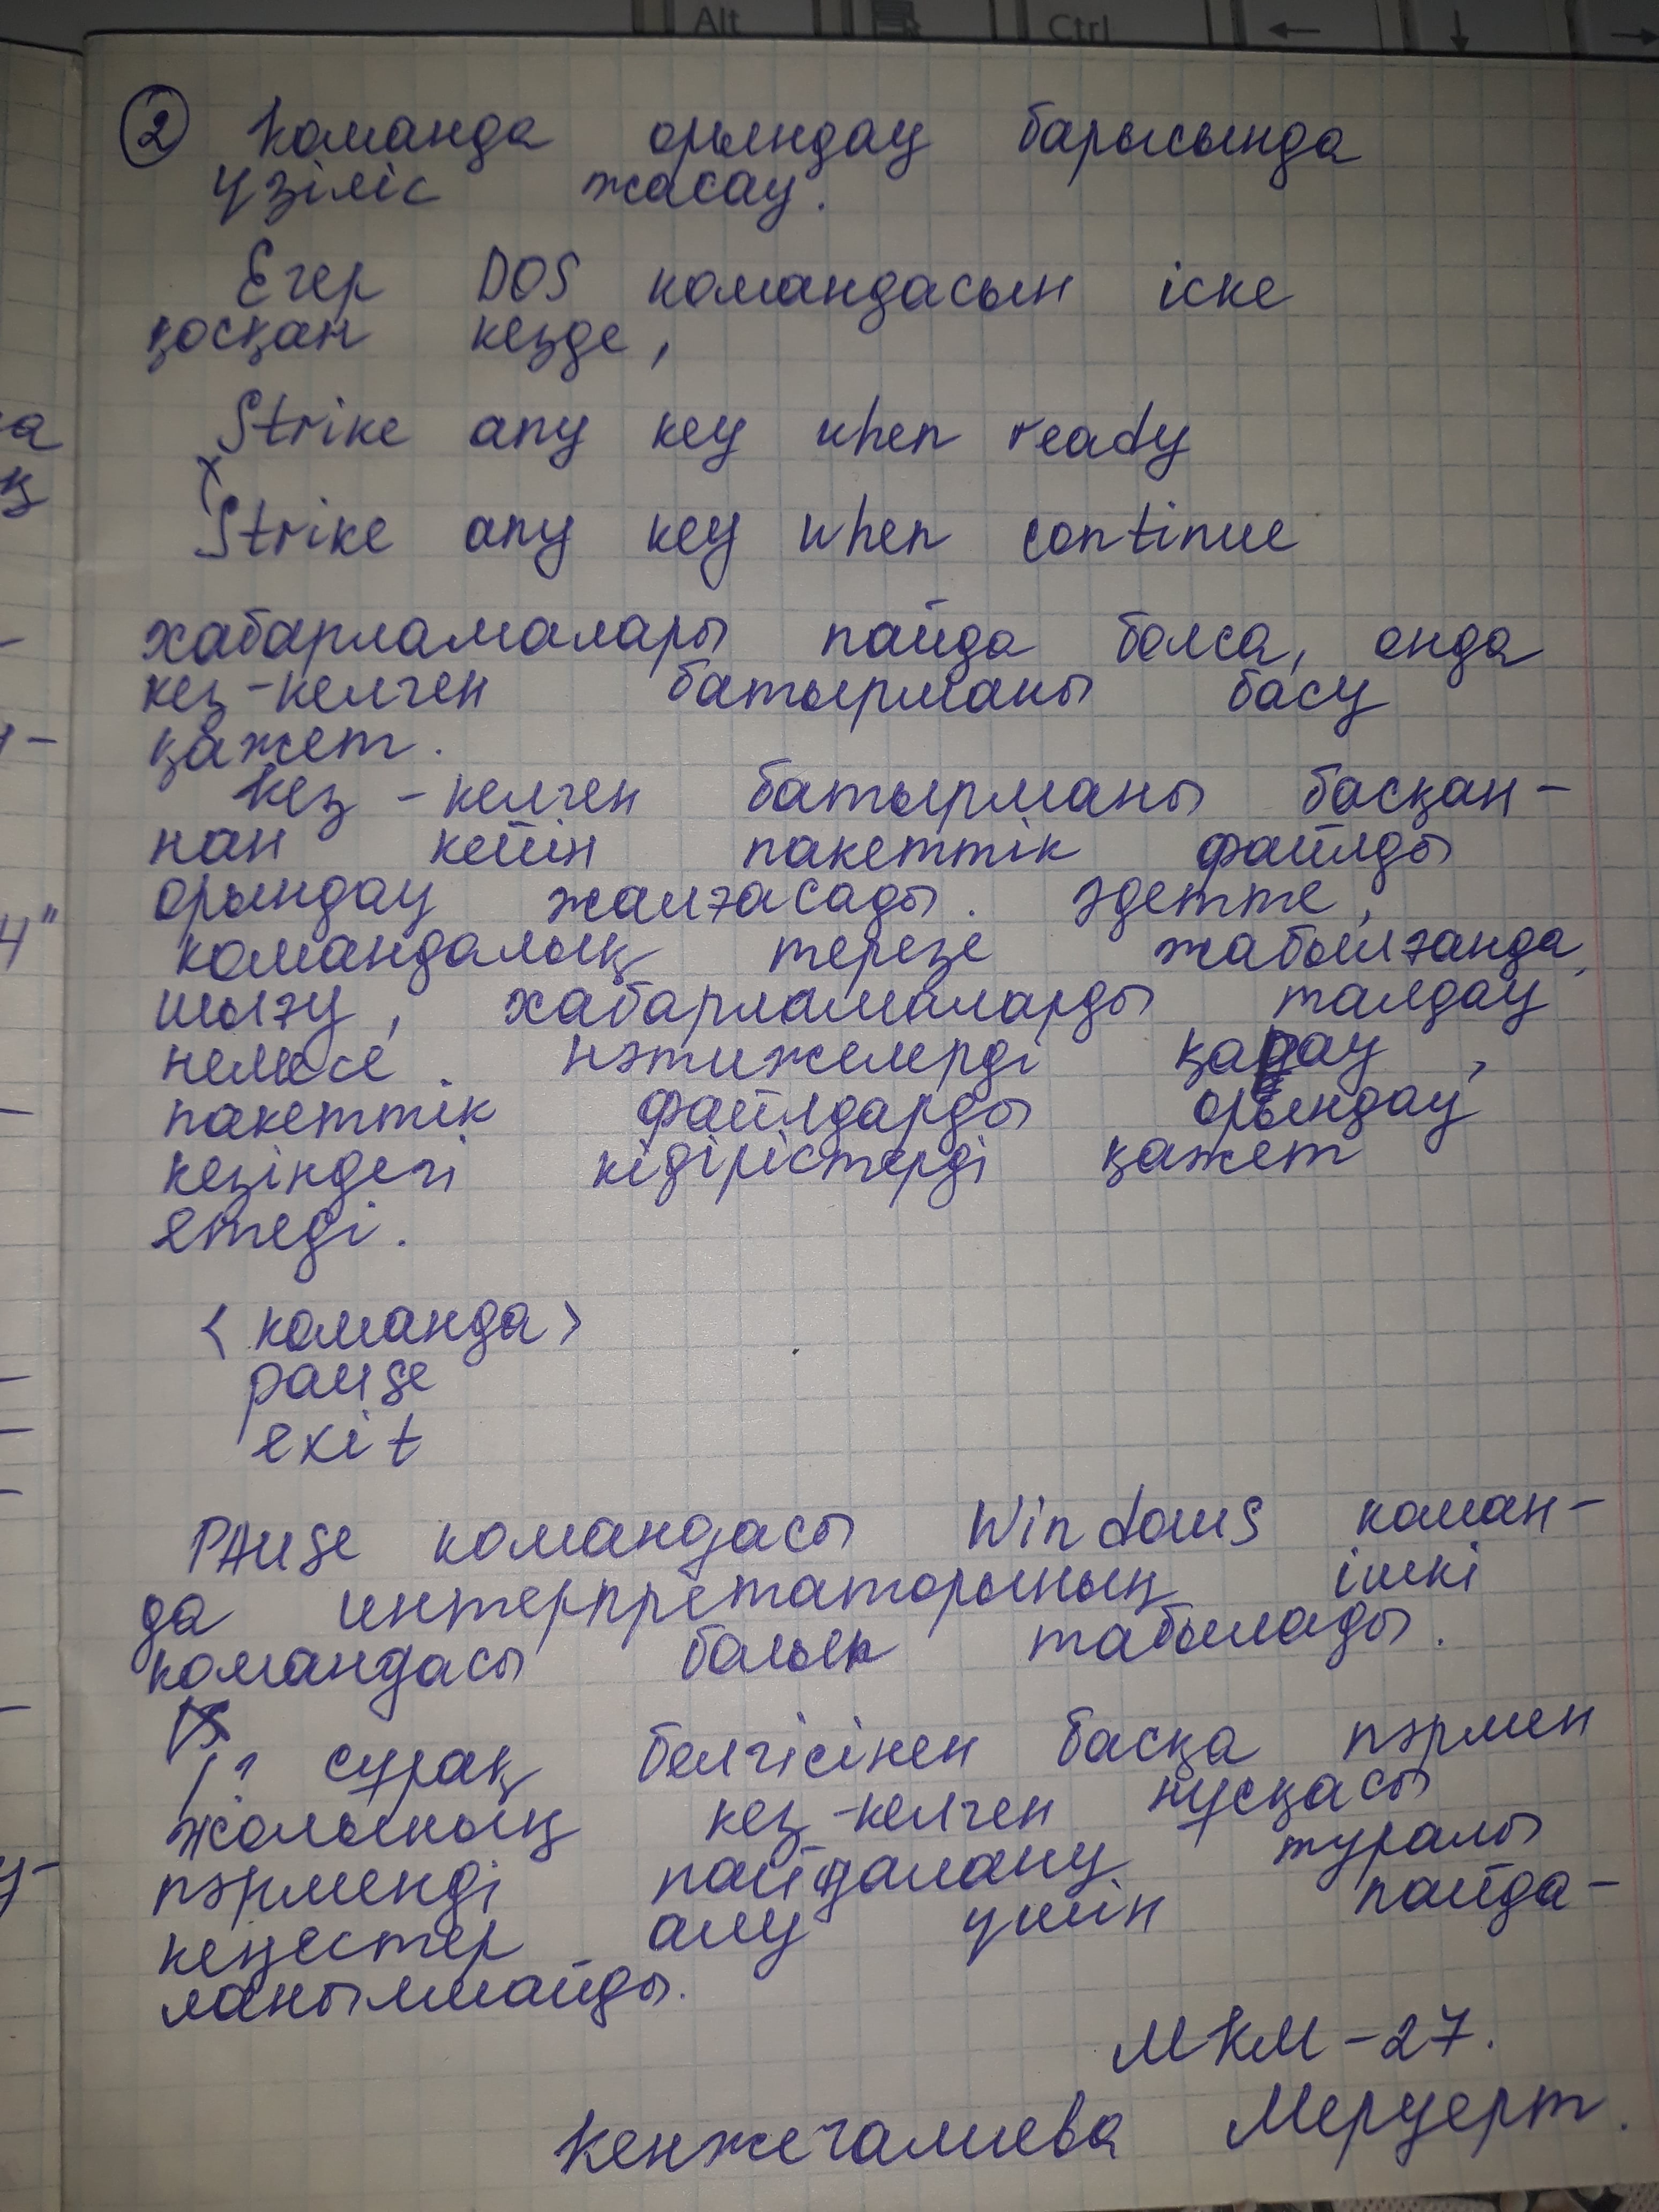 Alt Ctrl ← ↓ →
② Команда орындау барысында
үзіліс жасау.
Егер DOS командасын іске
қосқан кезде,
Strike any key when ready
Strike any key when continue
хабарламалары пайда болса, онда
кез-келген батырманы басу
қажет.
Кез-келген батырманы басқан-
нан кейін пакеттік файлды
орындау жалғасады. Әдетте,
командалық терезе жабылғанда,
шығу, хабарламаларды талдау
немесе нәтижелерді қарау,
пакеттік файлдарды орындау
кезіндегі кідірістерді қажет
етеді.
<команда>
pause
exit
PAUSE командасы Windows коман-
да интерпретаторының ішкі
командасы болып табылады.
/? сұрақ белгісінен басқа пәрмен
жолының кез-келген нұсқасы
пәрменді пайдалану туралы
кеңестер алу үшін пайда-
ланылмайды.
МКМ-27.
Кенжегалиева Меруерт.